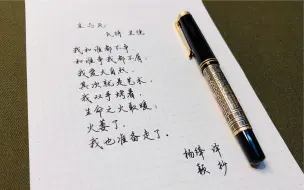 我和谁都不争
和谁争我都不屑；
我爱大自然，
其次就是艺术；
我双手烤着，
生命之火取暖；
火萎了，
我也准备走了。
杨绛 译
抄